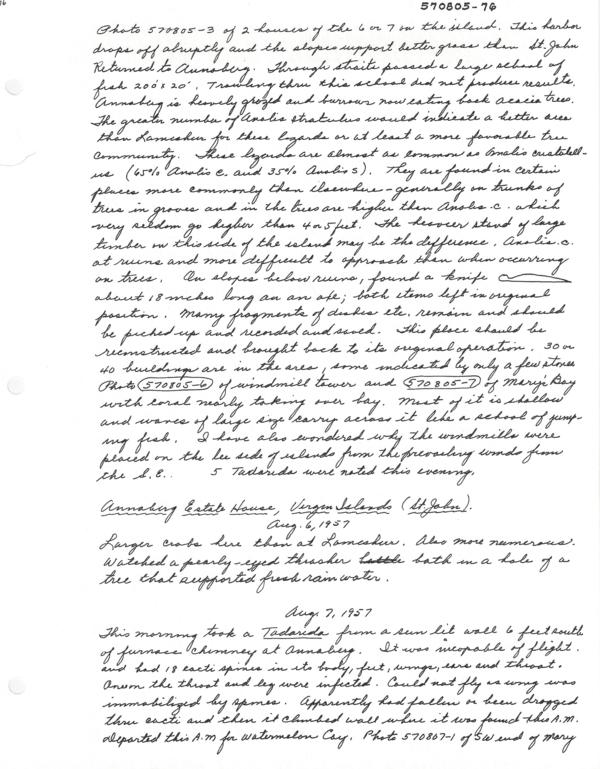 570805-76
Photo 570805-3 of 2 houses of the 6 or 7 on the island. This harbor
drops off abruptly and the slopes support better grass than St. John
Returned to Annaberg. Through straits passed a large school of
fish 200' x 20'. Trawling thru this school did not produce results.
Annaberg is heavily grazed and burros now eating back acacia trees.
The greater number of Anolis stratulus would indicate a better area
than Lameshur for these lizards or at least a more favorable tree
community. These lizards are almost as common as Anolis cristatell-
us (65% Anolis c. and 35% Anolis s). They are found in certain
places more commonly than elsewhere - generally on trunks of
trees in groves and in the trees are higher than Anolis c. which
very seldom go higher than 4 or 5 feet. The heavier stand of large
timber on this side of the island may be the difference. Anolis. c.
at ruins and more difficult to approach than when occurring
on trees. On slopes below ruins, found a knife
about 18 inches long an an axe; both items left in original
position. Many fragments of dishes etc. remain and should
be picked up and recorded and saved. This place should be
reconstructed and brought back to its original operation. 30 or
40 buildings are in the area, some indicated by only a few stones
Photo 570805-6 of windmill tower and 570805-7 of Mary's Bay
with coral nearly taking over bay. Most of it is shallow
and waves of large size carry across it like a school of jump-
ing fish. I have also wondered why the windmills were
placed on the lee side of islands from the prevailing winds from
the S.E.. 5 Tadarida were noted this evening.
Annaberg Estate House, Virgin Islands (St John).
Aug. 6, 1957
Larger crabs here than at Lameshur. Also more numerous.
Watched a pearly-eyed thrasher bath in a hole of a
tree that supported fresh rain water.
Aug. 7, 1957
This morning took a Tadarida from a sun lit wall 6 feet south
of furnace chimney at Annaberg. It was incapable of flight.
and had 18 cacti spines in its body, feet, wings, ears and throat.
One on the throat and leg were infected. Could not fly as wing was
immobilized by spines. Apparently had fallen or been dragged
thru cacti and then it climbed wall where it was found this A.M.
Departed this A.M for Watermelon Cay. Photo 570807-1 of SW end of Mary